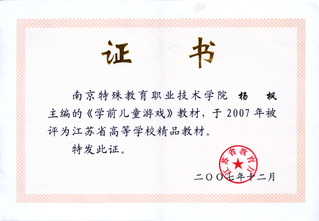 证 书
南京特殊教育职业技术学院 杨 枫
主编的《学前儿童游戏》教材，于 2007 年被
评为江苏省高等学校精品教材。
特发此证。
江苏省教育厅
二〇〇七年十二月